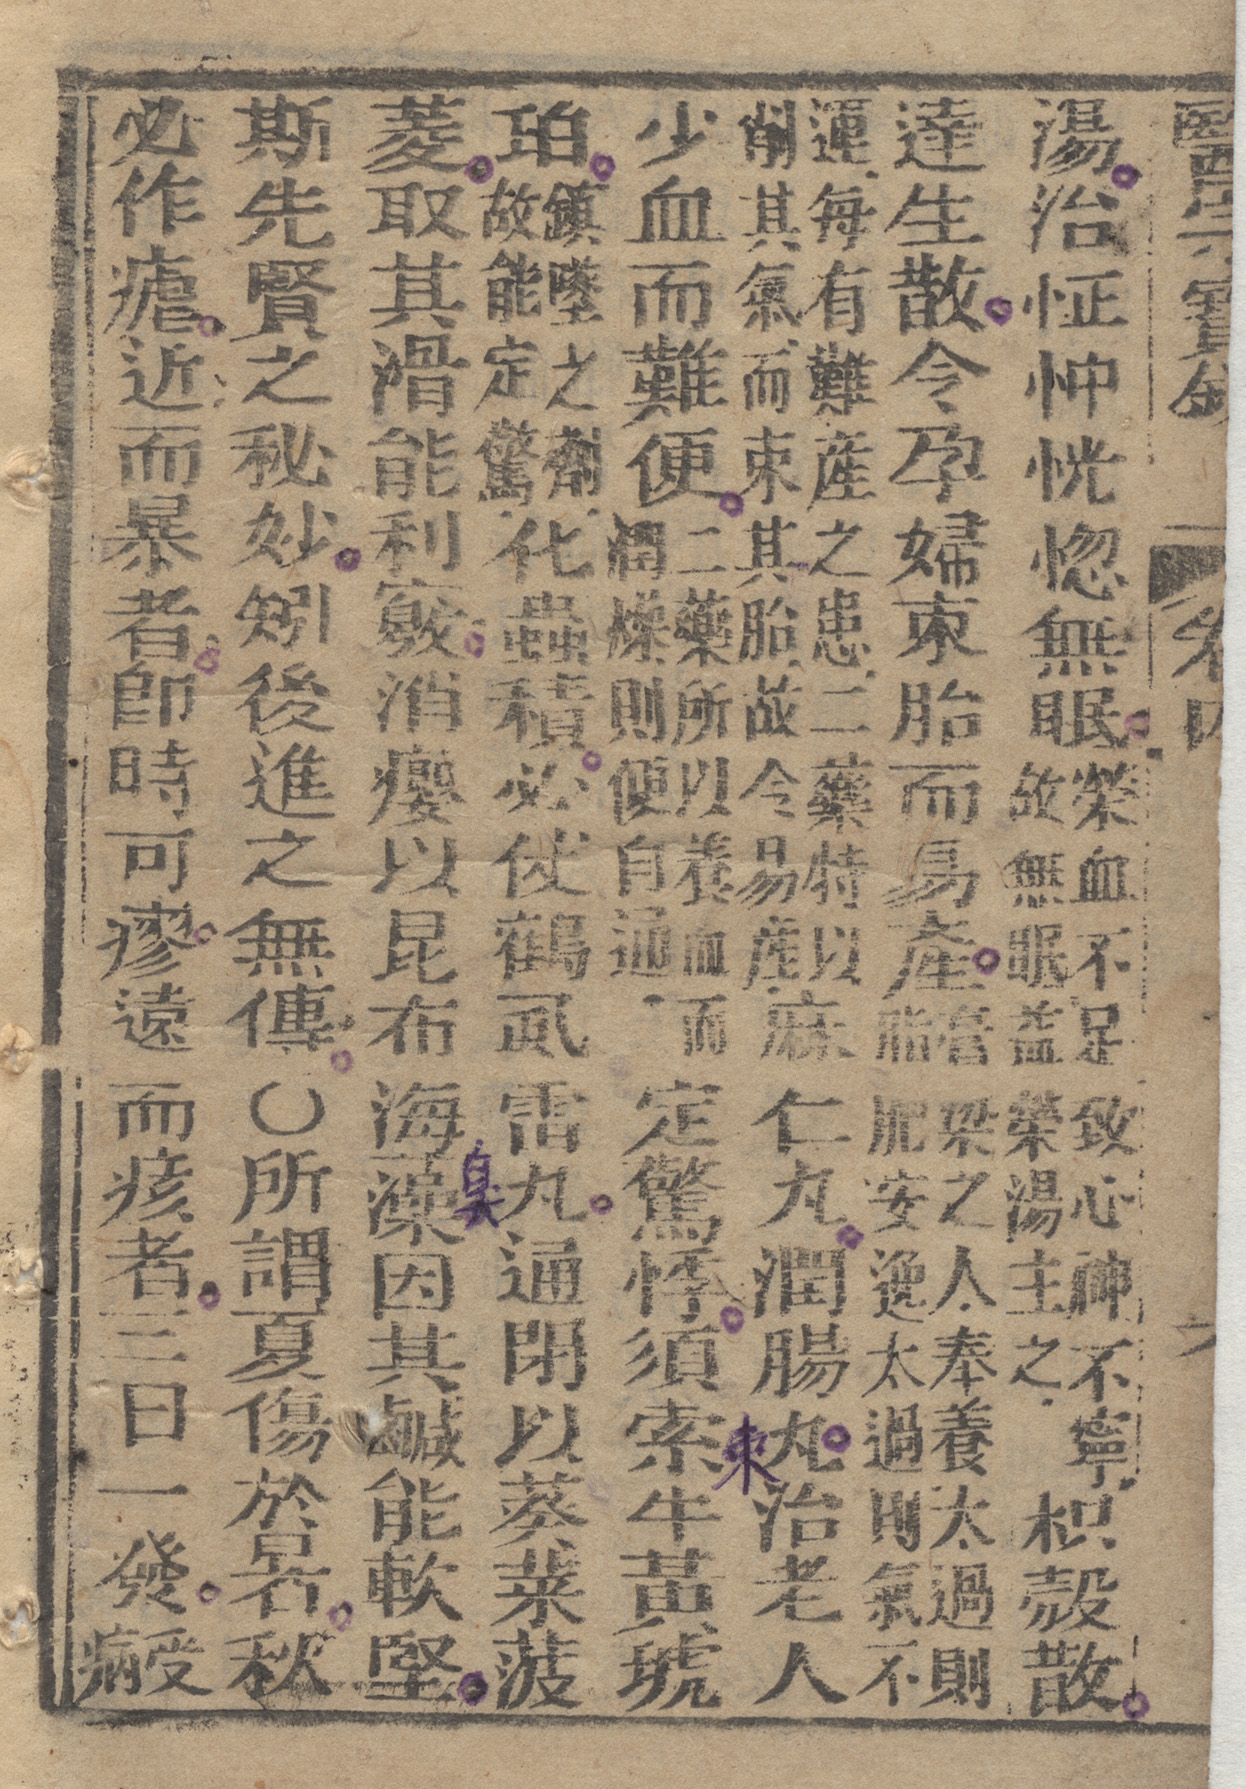 湯治怔忡恍惚無眠榮血不足致心神不寧故無眠益榮湯主之枳殼散
達生散令孕婦束胎而易產膏梁之人奉養太過則脂肥安逸太過則氣不
運每有難產之患二藥特以削其氣而束其胎故令易產麻仁丸潤腸丸治老人
少血而難便二藥所以養血而潤燥則便自通定驚悸須索牛黃琥
珀鎮墜之劑故能定驚化蟲積必仗鶴虱雷丸通閉以葵菜菠
菱取其滑能利竅消癭以昆布海藻因其鹹能軟堅
斯先賢之秘妙矧後進之無傳〇所謂夏傷於暑秋
必作瘧近而暴者即時可瘳遠而痎者三日一發受病
臭
束